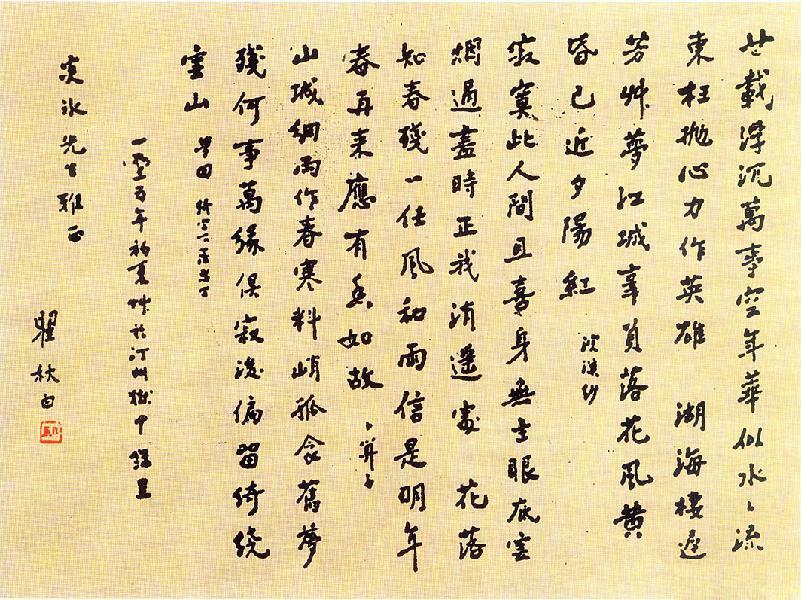 廿載浮沉萬事空年華似水〻流
東枉拋心力作英雄 湖海棲遲
芳艸夢江城辜負落花風黃
昏已近夕陽紅 浣溪紗
寂寞此人間且喜身無主眼底雲
烟過盡時正我逍遙處 花落
知春殘一任風和雨信是明年
春再來應有香如故 卜算子
山城細雨作春寒料峭孤衾舊夢
殘何事萬緣俱寂後偏留綺繞
雲山 夢回
年初夏於汀州獄中 錄呈
冰先生雅正
瞿秋白